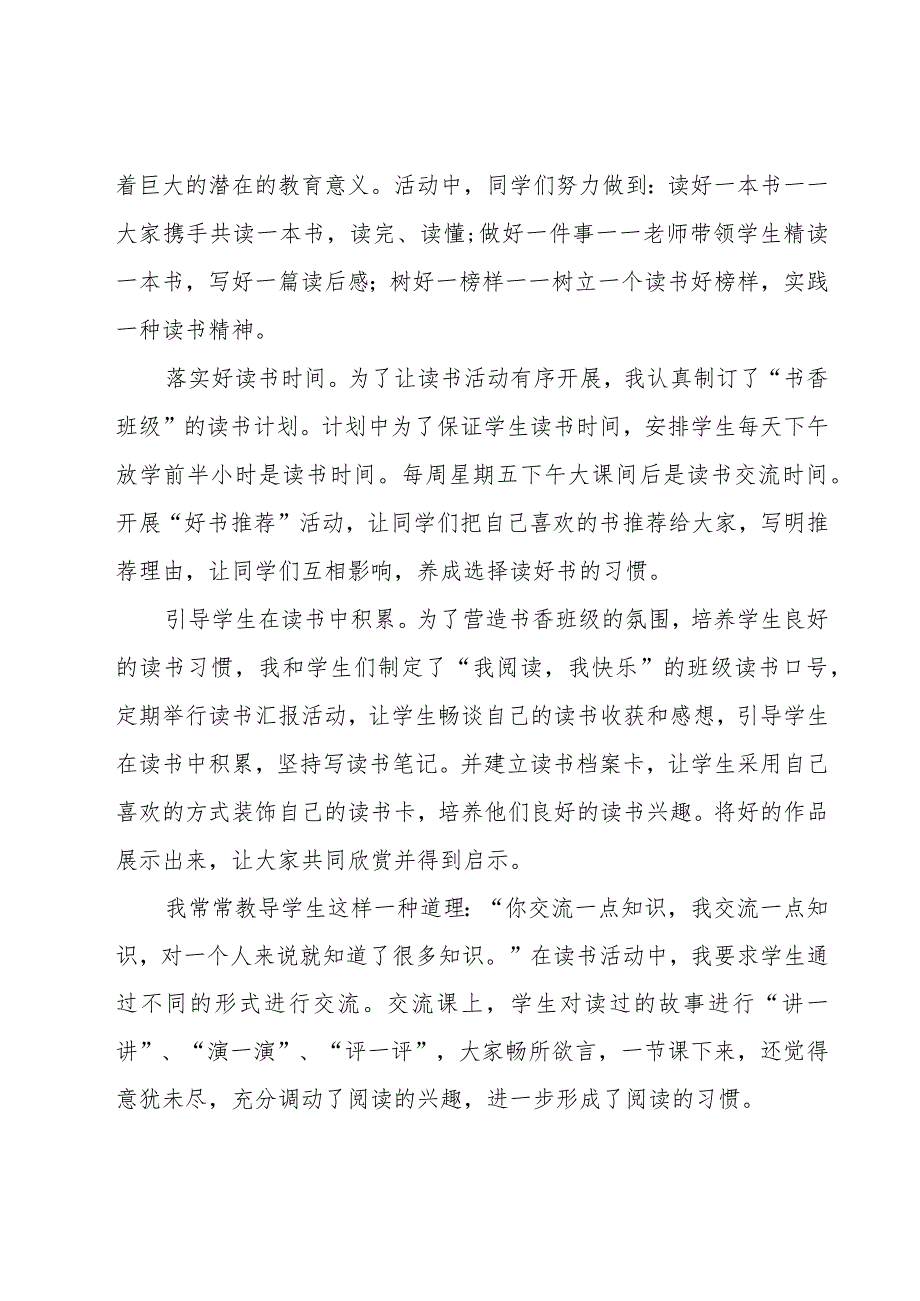 着巨大的潜在的教育意义。活动中，同学们努力做到：读好一本书一一
大家携手共读一本书，读完、读懂;做好一件事一一老师带领学生精读
一本书，写好一篇读后感；树好一榜样一一树立一个读书好榜样，实践
一种读书精神。
落实好读书时间。为了让读书活动有序开展，我认真制订了“书香
班级”的读书计划。计划中为了保证学生读书时间，安排学生每天下午
放学前半小时是读书时间。每周星期五下午大课间后是读书交流时间。
开展“好书推荐”活动，让同学们把自己喜欢的书推荐给大家，写明推
荐理由，让同学们互相影响，养成选择读好书的习惯。
引导学生在读书中积累。为了营造书香班级的氛围，培养学生良好
的读书习惯，我和学生们制定了“我阅读，我快乐”的班级读书口号，
定期举行读书汇报活动，让学生畅谈自己的读书收获和感想，引导学生
在读书中积累，坚持写读书笔记。并建立读书档案卡，让学生采用自己
喜欢的方式装饰自己的读书卡，培养他们良好的读书兴趣。将好的作品
展示出来，让大家共同欣赏并得到启示。
我常常教导学生这样一种道理：“你交流一点知识，我交流一点知
识，对一个人来说就知道了很多知识。”在读书活动中，我要求学生通
过不同的形式进行交流。交流课上，学生对读过的故事进行“讲一
讲”、“演一演”、“评一评”，大家畅所欲言，一节课下来，还觉得
意犹未尽，充分调动了阅读的兴趣，进一步形成了阅读的习惯。